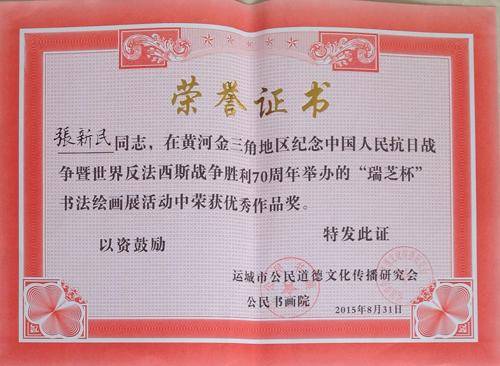 荣誉证书
張新民同志，在黄河金三角地区纪念中国人民抗日战
争暨世界反法西斯战争胜利70周年举办的“瑞芝杯”
书法绘画展活动中荣获优秀作品奖。
以资鼓励 特发此证
运城市公民道德文化传播研究会
公民书画院 2015年8月31日